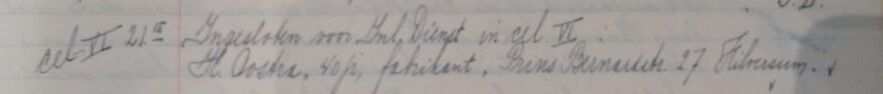 cel VI 21 15 Ingesloten voor Inl. Dienst in cel VI :
H. Oostra, 40 j, fabrikant, Prins Bernardstr. 27 Hilversum.